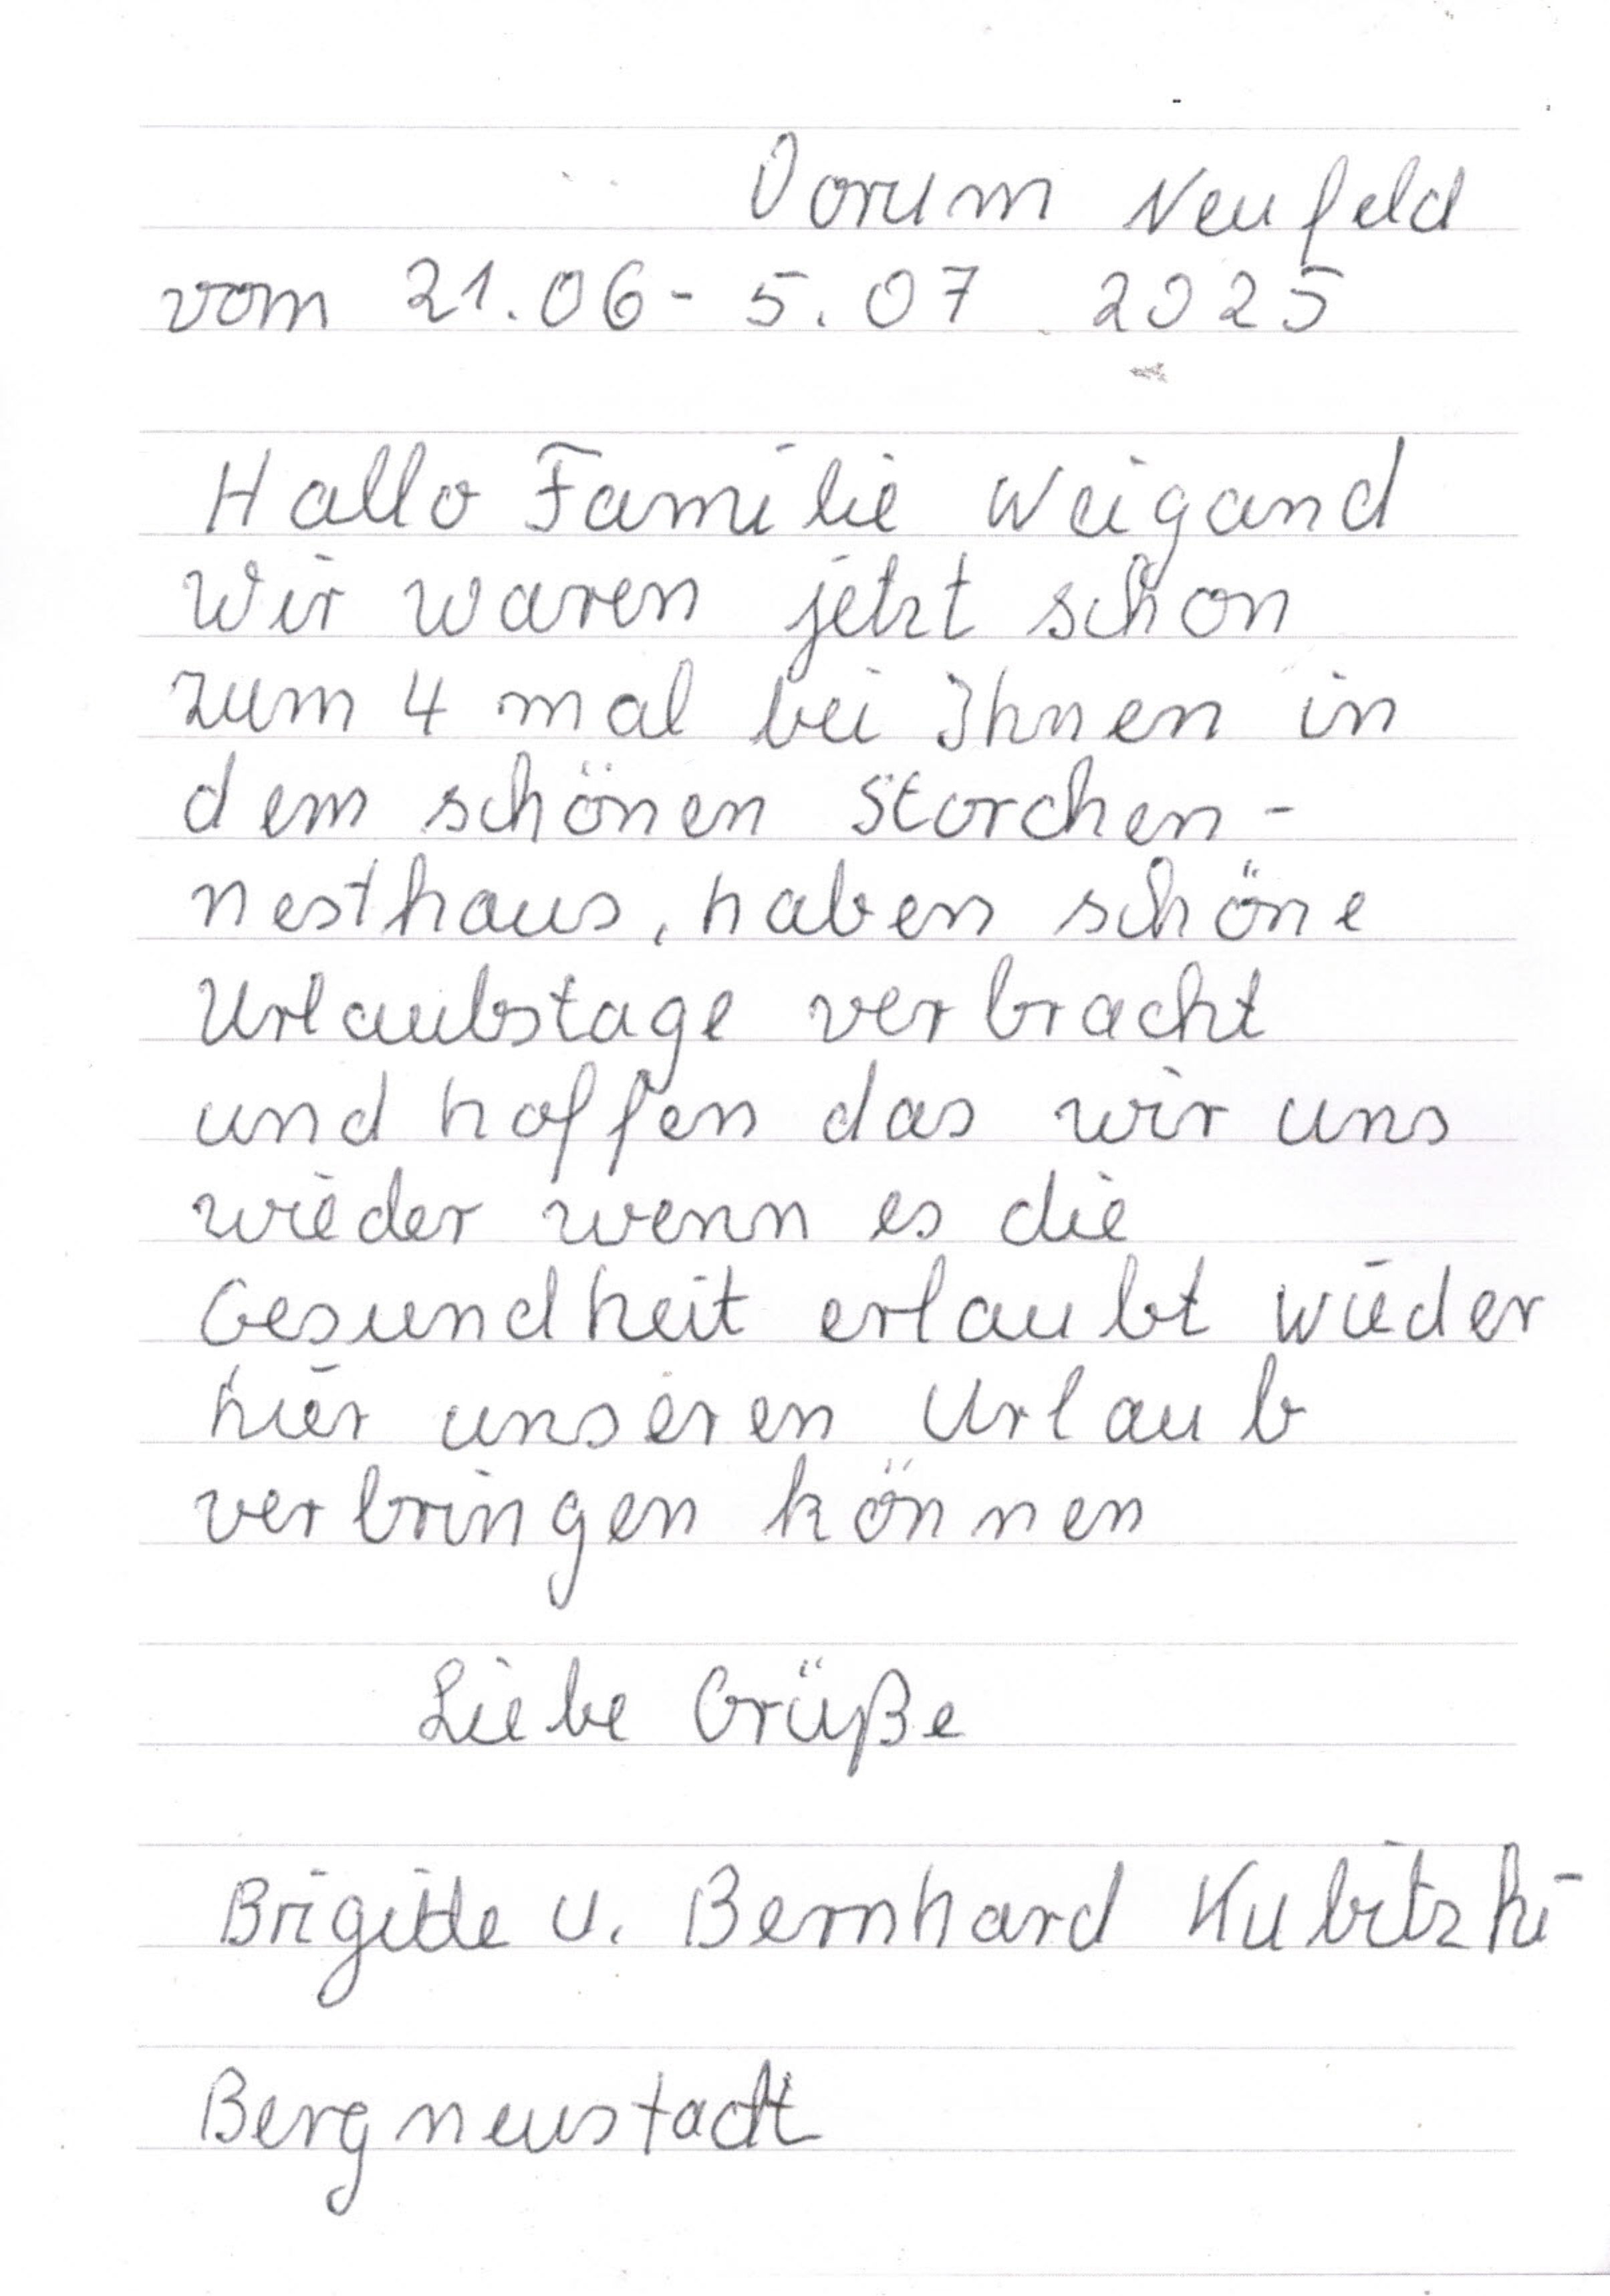 Dorum Neufeld
vom 21.06 - 5.07. 2025
Hallo Familie Weigand
Wir waren jetzt schon
zum 4 mal bei Ihnen in
dem schönen Storchen-
nesthaus, haben schöne
Urlaubstage verbracht
und hoffen das wir uns
wieder wenn es die
Gesundheit erlaubt wieder
hier unseren Urlaub
verbringen können
Liebe Grüße
Brigitte u. Bernhard Kubitzki
Bergneustadt